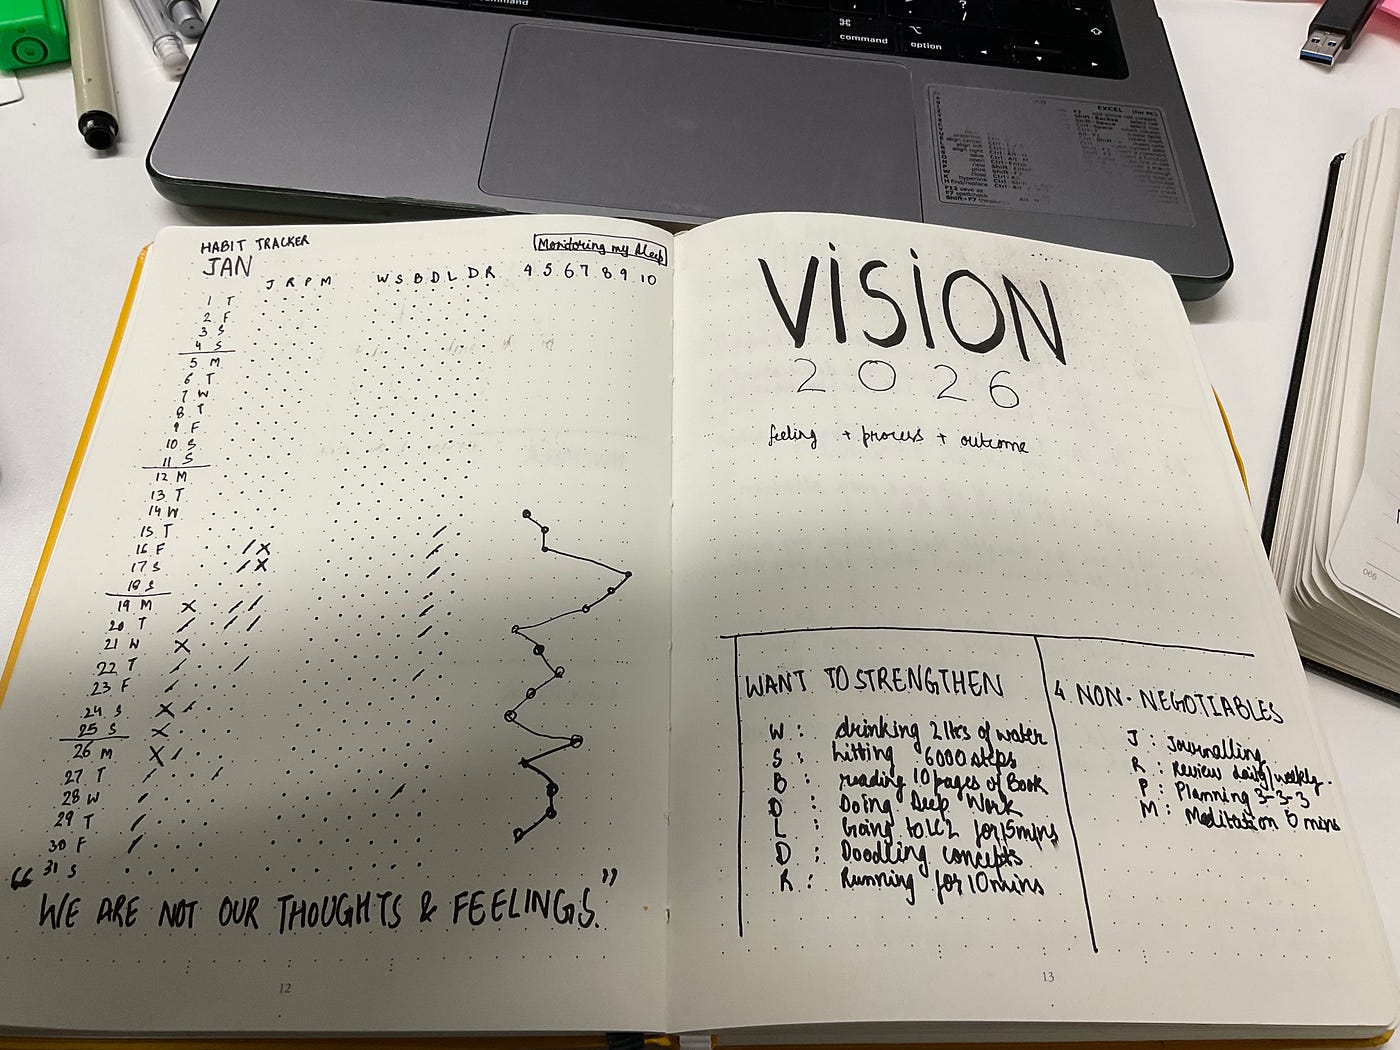 command
?
/
⌘
command
⌥
option
EXCEL (for PC)
F12 save as
F7 spellcheck
HABIT TRACKER
JAN
Monitoring my sleep
J R P M W S B D L D R 4 5 6 7 8 9 10
1 T
2 F
3 S
4 S
5 M
6 T
7 W
8 T
9 F
10 S
11 S
12 M
13 T
14 W
15 T
16 F / X
17 S / X
18 S
19 M X / /
20 T / / /
21 W X
22 T / /
23 F /
24 S X /
25 S X
26 M X /
27 T / /
28 W / /
29 T /
30 F /
31 S
“WE ARE NOT OUR THOUGHTS & FEELINGS.”
12
VISION
2026
feeling + process + outcome
WANT TO STRENGTHEN
W : drinking 2 ltrs of water
S : hitting 6000 steps
B : reading 10 pages of Book
D : Doing Deep Work
L : Going to LC2 for 15mins
D : Doodling concepts
R : Running for 10 mins
4 NON-NEGOTIABLES
J : Journalling
R : Review daily/weekly.
P : Planning 3-3-3
M : Meditation 5 mins
13
090